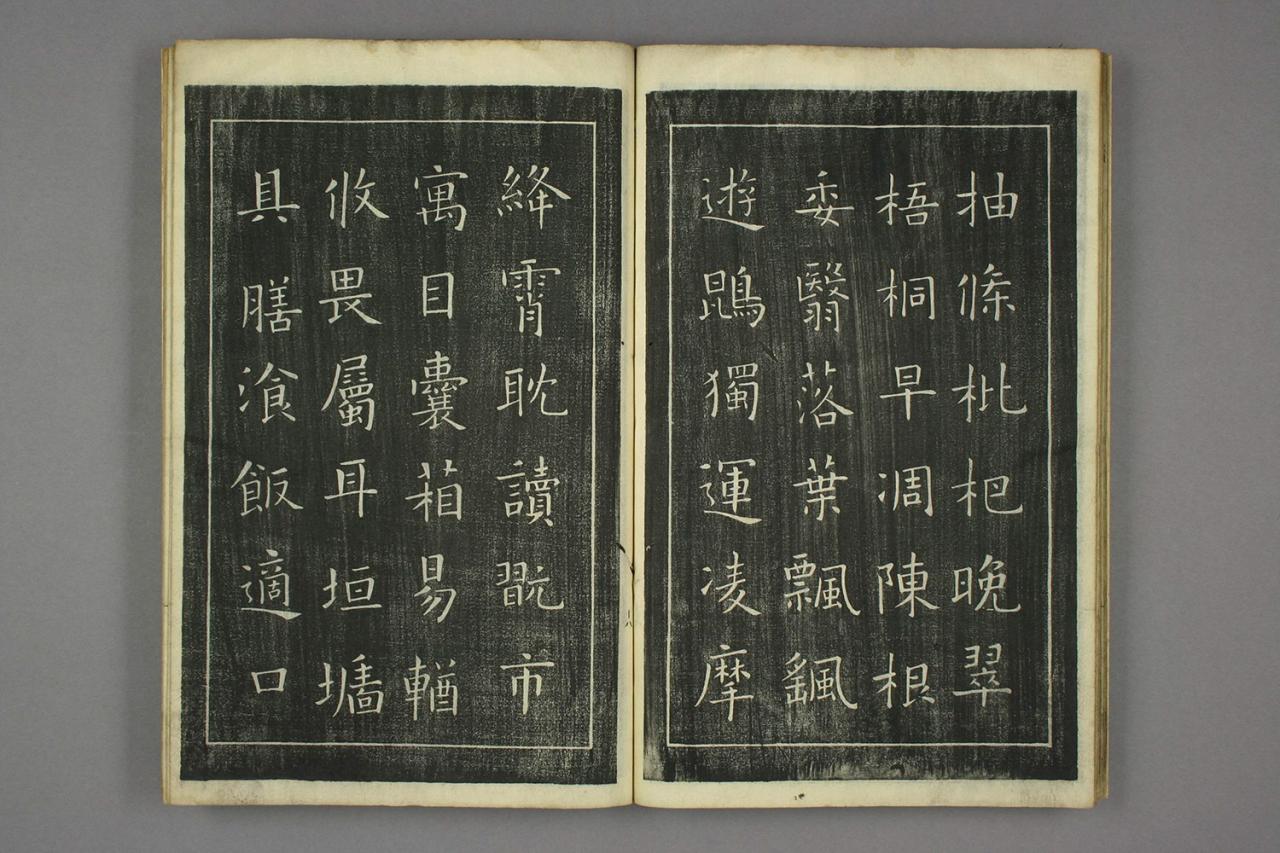 抽條枇杷晚翠
梧桐早凋陳根
委翳落葉飄颻
遊鵾獨運凌摩
絳霄耽讀翫市
寓目囊箱易輶
攸畏屬耳垣墻
具膳湌飯適口